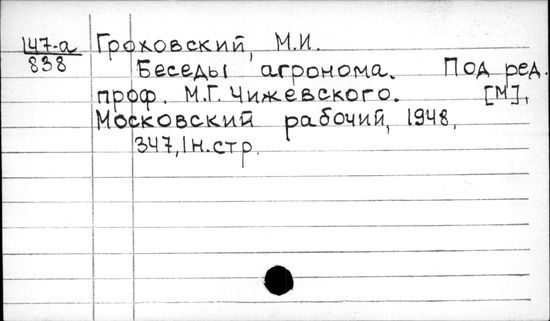 147-а Гроховский, М.И.
838
Беседы агронома. Под ред.
проф. М.Г. Чижевского. [М],
Московский рабочий, 1948,
347, 1 н. стр.